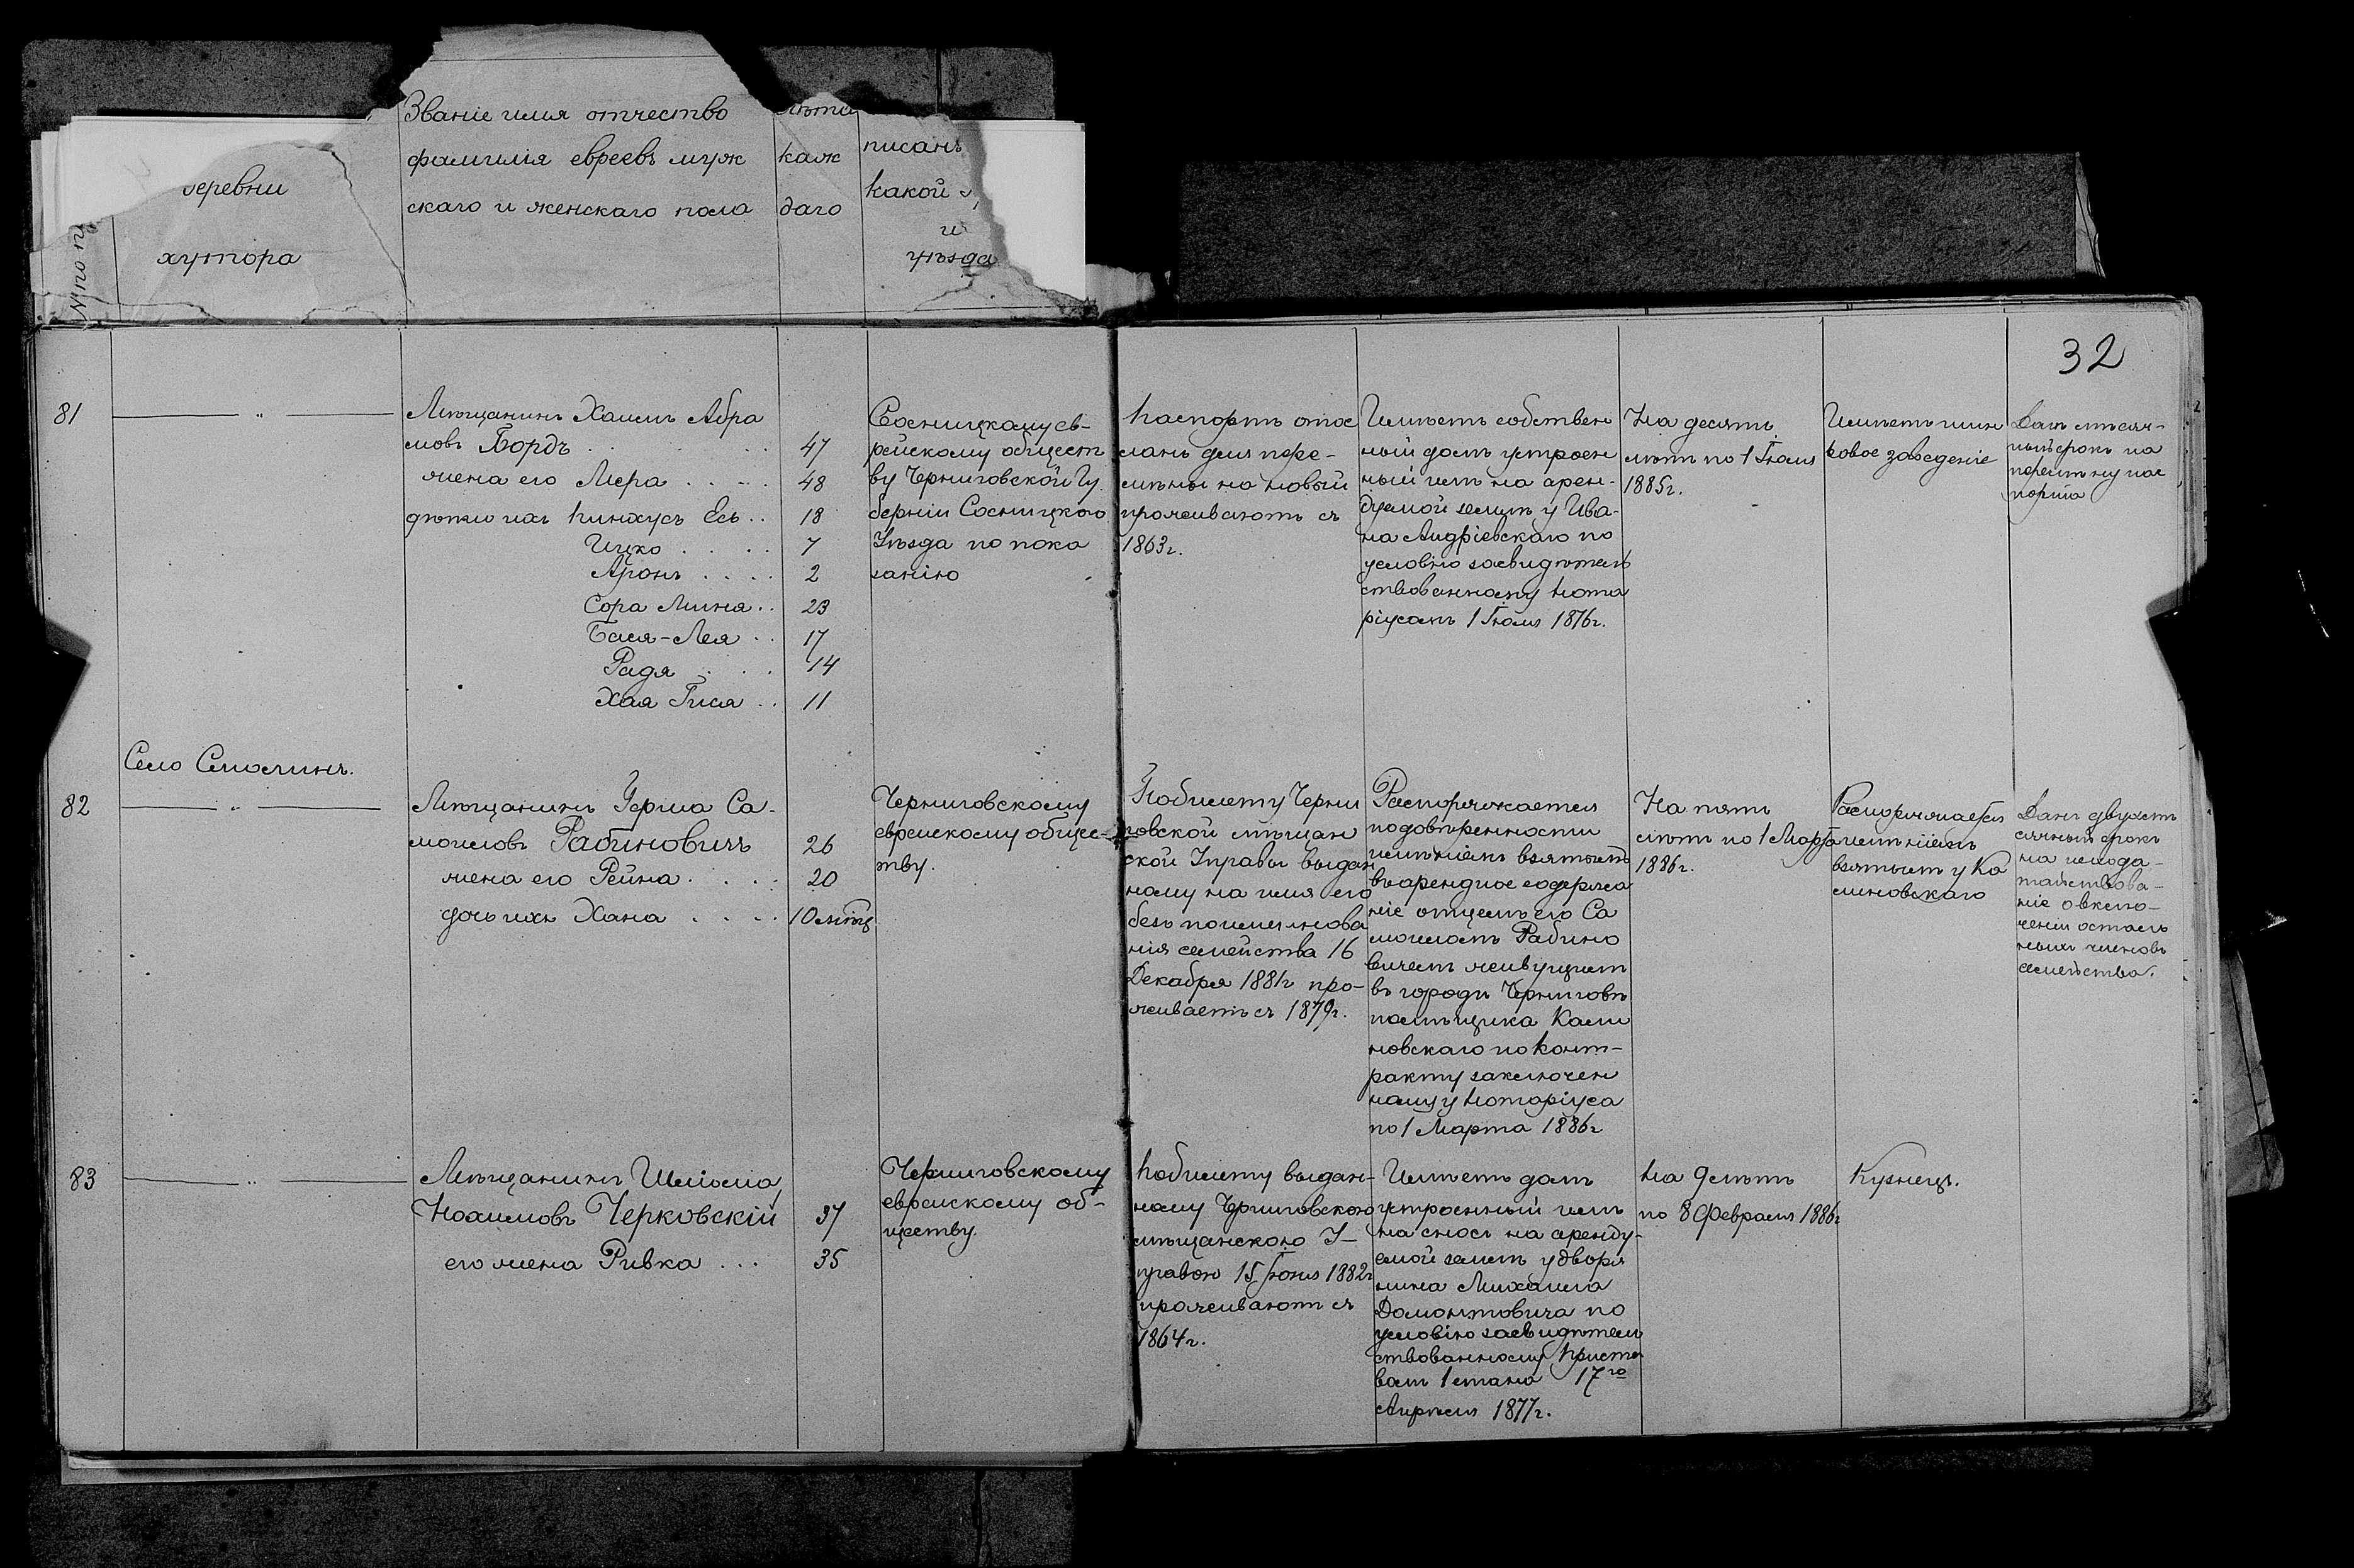 Званіе имя отчество
фамилія евреевъ муж
скаго и женскаго пола
лѣта
каж
даго
писанъ
какой
и
уѣзда
деревни
хутора
№ по
32
81
— „ —
Мѣщанинъ Хаимъ Абра
мовъ Бордъ . . . 47
жена его Мера . . . . 48
дѣти ихъ Пинхусъ Есь . . 18
Ицко . . . . 7
Аронъ . . . . 2
Сора Миня . . 23
Бася-Лея . . 17
Радя . . . 14
Хая Гися . . 11
Сосницкому ев-
рейскому общест
ву Черниговской Гу
берніи Сосницкого
Уѣзда по пока
занію
Паспортъ отос
ланъ для пере-
мѣны на новый
проживаютъ съ
1863г.
Имѣетъ собствен
ный домъ устроен
ный имъ на арен-
дуемой землѣ у Ива-
на Андріевскаго по
условію засвидѣтель
ствованному нота
ріусомъ 1 Іюля 1876г.
На десять
лѣтъ по 1 Іюля
1885г.
Имѣетъ шин
ковое заведеніе
Данъ мѣсяч-
ный срокъ на
перемѣну пас
порта
Село Смолинъ.
82
— „ —
Мѣщанинъ Герша Са-
мойловъ Рабиновичъ 26
жена его Рейна . . . . 20
дочь ихъ Хана . . . . 10 мѣц.
Черниговскому
еврейскому общес-
тву.
По билету Черни
говской мѣщан
ской Управы выдан
ному на имя его
безъ поименова
нія семейства 16
Декабря 1881г про-
живаетъ съ 1879г.
Распоряжается
по довѣренности
имѣніемъ взятымъ
въ арендное содержа
ніе отцемъ его Са
мойломъ Рабино
вичемъ живущимъ
въ городѣ Черниговѣ
помѣщика Кали
новскаго по конт-
ракту заключен
ному у нотаріуса
по 1 Марта 1886г
На пять
лѣтъ по 1 Марта
1886г.
Распоряжается
имѣніемъ
взятымъ у Ка
линовскаго
Данъ двухмѣ
сячный срокъ
на исхода-
тайствова-
ніе о вклю-
ченіи осталь
ныхъ членовъ
семейства.
83
— „ —
Мѣщанинъ Шліома
Нохимовъ Черковскій 37
его жена Ривка . . . 35
Черниговскому
еврейскому об-
ществу.
По билету выдан-
ному Черниговскою
мѣщанскою У-
правою 15 Іюня 1882г
проживаютъ съ
1864г.
Имѣетъ домъ
устроенный имъ
на сносъ на аренду-
емой землѣ у дворя
нина Михаила
Домонтовича по
условію засвидѣтель
ствованному Приста
вомъ 1 стана 17го
Апрѣля 1877г.
На 9 лѣтъ
по 8 Февраля 1886г
Кузнецъ.